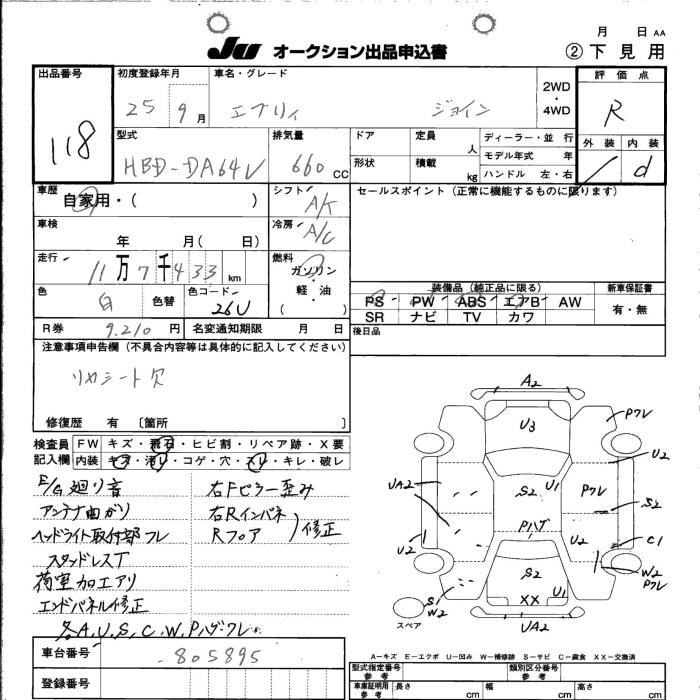 月 日 AA
JU オークション出品申込書 ②下見用
出品番号 118
初度登録年月 25 9月
車名・グレード エブリィ ジョイン
2WD・4WD
評価点 R
外装 内装 d
型式 HBD-DA64V
排気量 660 CC
ドア 定員 人
形状 積載 kg
ディーラー・並行
モデル年式 年
ハンドル 左・右
車歴 自家用・( )
シフト A/T
セールスポイント (正常に機能するものに限ります)
車検 年 月( 日)
冷房 A/C
走行 11万7千433km
燃料 ガソリン・軽油・( )
色 白 色替 色コード 26U
装備品 (純正品に限る) 新車保証書
PS PW ABS エアB AW 有・無
SR ナビ TV カワ
R券 9.210円 名変通知期限 月 日
後日品
注意事項申告欄 (不具合内容等は具体的に記入してください)
リヤシート欠
修復歴 有 [箇所 ]
検査員記入欄
FW キズ・飛石・ヒビ割・リペア跡・X要
内装 キズ・汚レ・コゲ・穴・スレ・キレ・破レ
E/G廻り音 右Fピラー歪み
アンテナ曲がり 右Rインパネ
ヘッドライト取付部フレ Rフロア 修正
スタッドレスT
荷室加工アリ
エンドパネル修正
各A,U,S,C,W,Pハゲ・フレ
A2
U3
Pフレ
U2
UA2
S2
U1
Pフレ
S2
Pハゲ
C1
U2
U2
S2
W2
Pフレ
S
W2
U1
XX
UA2
スペア
車台番号 -805895
登録番号
A−キズ E−エクボ U−凹み W−補修跡 S−サビ C−腐食 XX−交換済
型式指定番号 参考 類別区分番号 参考
車庫証明用 参考 長さ cm 幅 cm 高さ cm